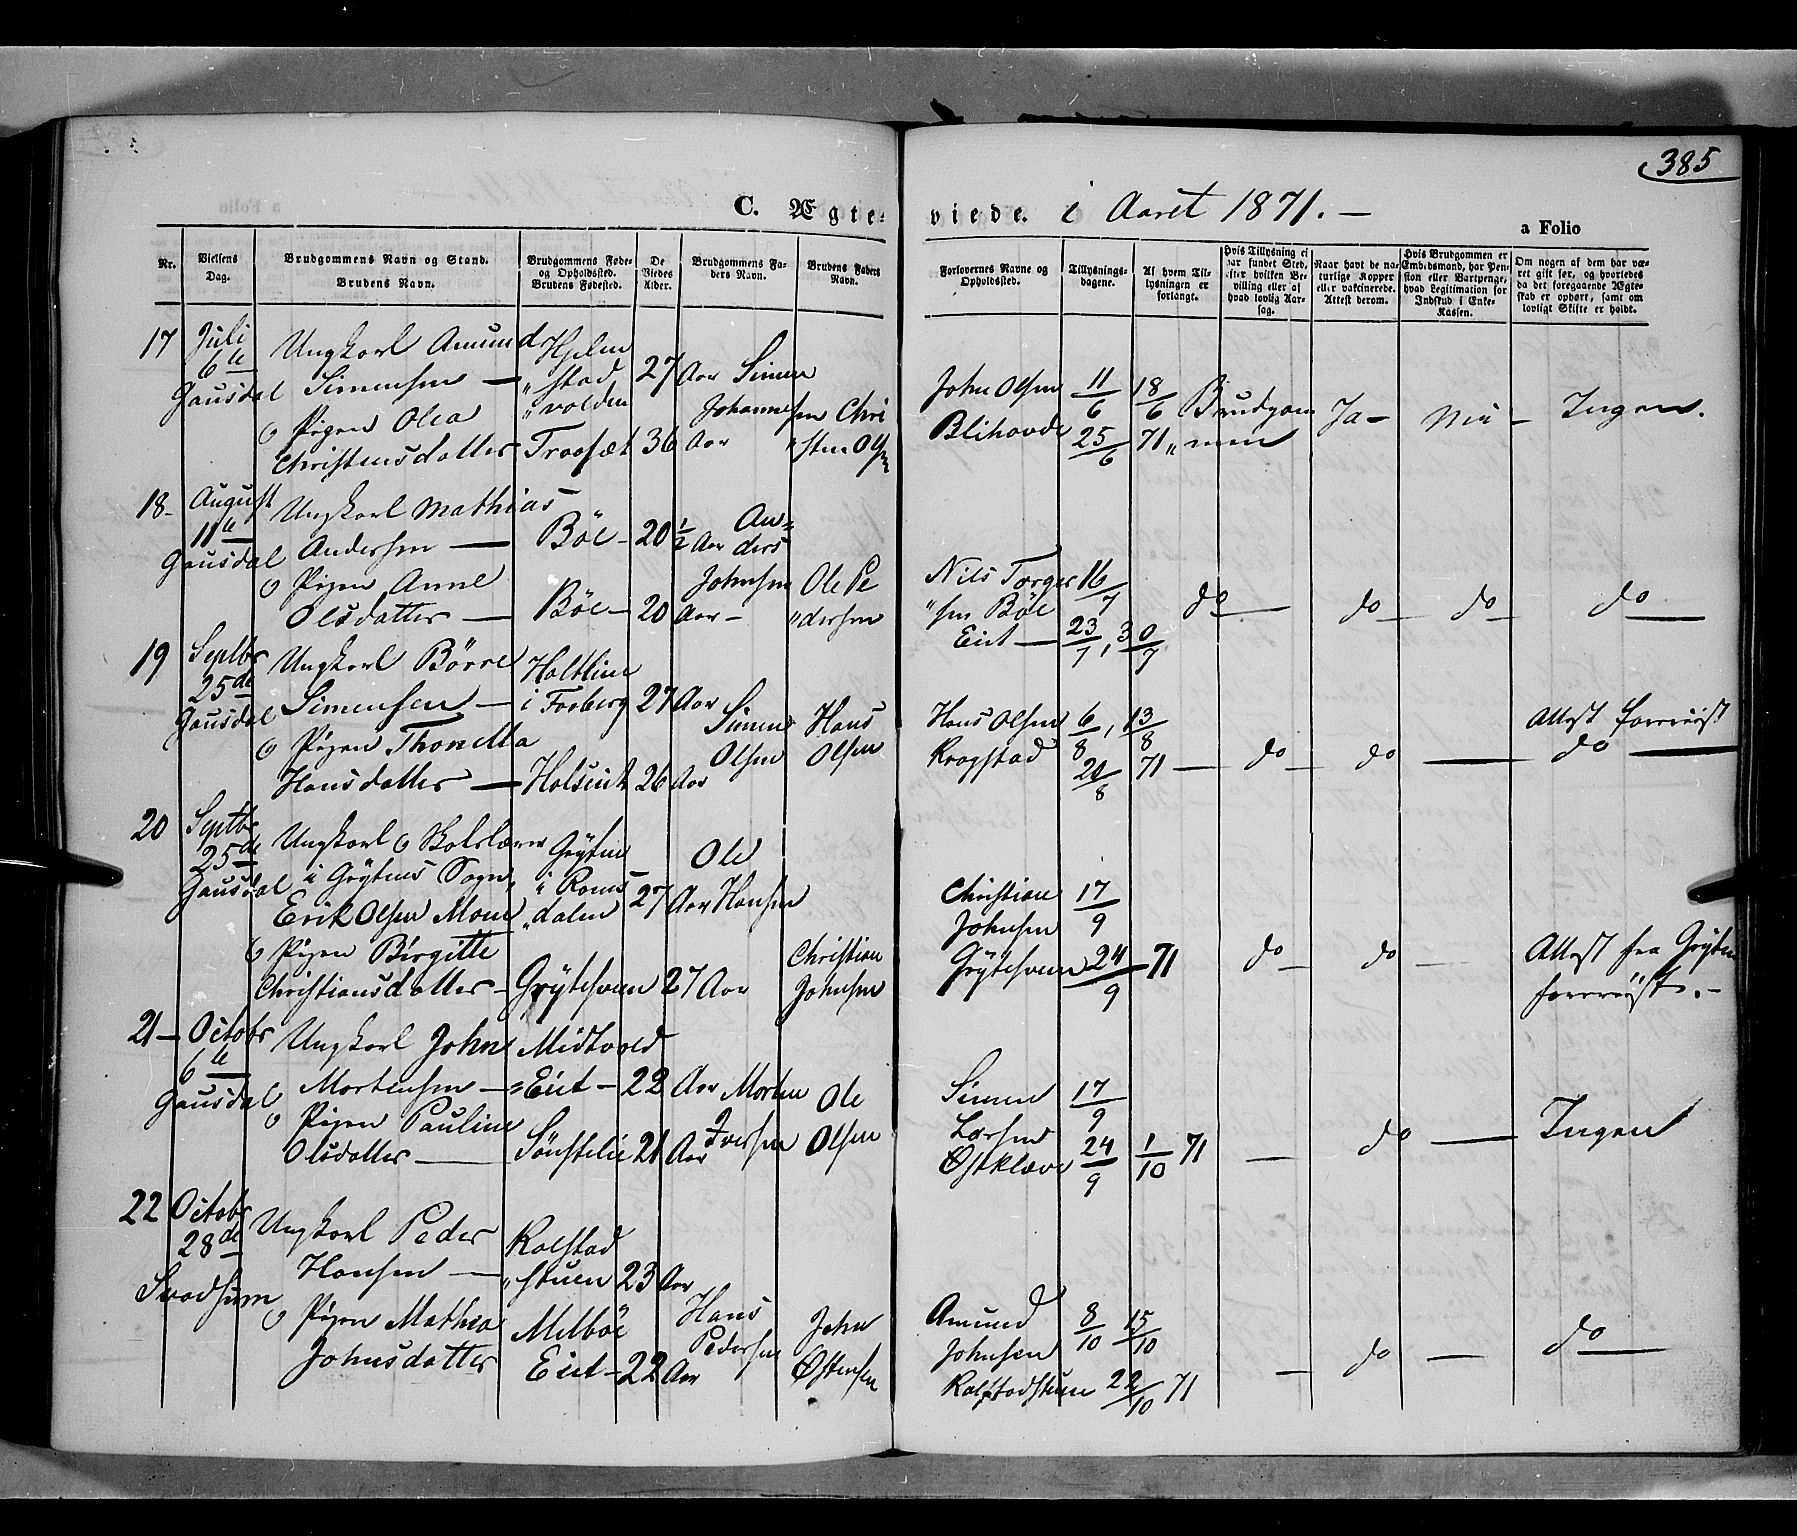 385
C. Ægteviede. i Aaret 1871. —
a Folio
Nr.
Vielsens Dag.
Brudgommens Navn og Stand.
Brudens Navn.
Brudgommens Føde- og Opholdssted.
Brudens Fødested.
De Viedes Alder.
Brudgommens Faders Navn.
Brudens Faders Navn.
Forlovernes Navne og Opholdssted.
Tillysningsdagene.
Af hvem Tillysningen er forlangt.
Hvis Tillysning ei har fundet Sted, efter hvilken Bevilling eller af hvad lovlig Aarsag.
Naar havt de naturlige Kopper eller vakcinerede. Attest derom.
Hvis Brudgommen er Embedsmand, har Pension eller Vartpenge, hvad Legitimation for Indskud i Enke-Kassen.
Om nogen af dem har været gift før, og hvorledes da det foregaaende Ægteskab er ophørt, samt om lovligt Skifte er holdt.
17 Juli 6te Gausdal
Ungkarl Amund Simensen —
Hjelmstad„volden 27 Aar
Simen Johannesen
o Pigen Olea Christensdatter
Traasæt 36 Aar
Christen Olsen
John Olsen Blihovde
11/6 18/6 25/6 71
Brudgom„men
Ja — Nei — Ingen.
18 - August 11te Gausdal
Ungkarl Mathias Andersen —
Böe — 20 1/2 Aar
Anders Johnsen
o Pigen Anne Olsdatter —
Böe — 20 Aar —
Ole Pe„dersen
Nils Torger„sen Böe Eiet —
16/7 23/7, 30/7
do — do — do — do —
19 Septbr 25de Gausdal
Ungkarl Börre Simensen —
Holtlien i Forberg 27 Aar
Simen Olsen
o Pigen Thonetta Hansdatter —
Holseiet 26 Aar
Hans Olsen
Hans Olsen Krogstad
6/8, 13/8 20/8 71 —
do — do —
Attest foreviist
do —
20 Septbr 25de Gausdal
Ungkarl o Skolelærer i Grytens Sogn, Erik Olsen Moen
Gryten i Roms„dalen 27 Aar
Ole Hansen
o Pigen Birgitte Christiansdatter —
Grytesveen 27 Aar
Christian Johnsen
Christian Johnsen Grytesveen
17/9 24/9 71
do — do —
Attest fra Gryten foreviist. —
21 — Octobr 6te Gausdal
Ungkarl John Mortensen —
Midtvold Eiet — 22 Aar
Morten Iversen
o Pigen Pauline Olsdatter —
Sönstelie 21 Aar
Ole Olsen
Simen Larsen Østkleve
17/9 24/9 1/10 71
— do — Ingen
22 Octobr 28de Svadsum
Ungkarl Peder Hansen —
Kalstad„stuen 23 Aar
Hans Pedersen
o Pigen Mathea Johnsdatter
Melböe Eiet — 22 Aar
John Østensen
Amund Johnsen Kalstadstuen
8/10 15/10 22/10 71
— do — do —